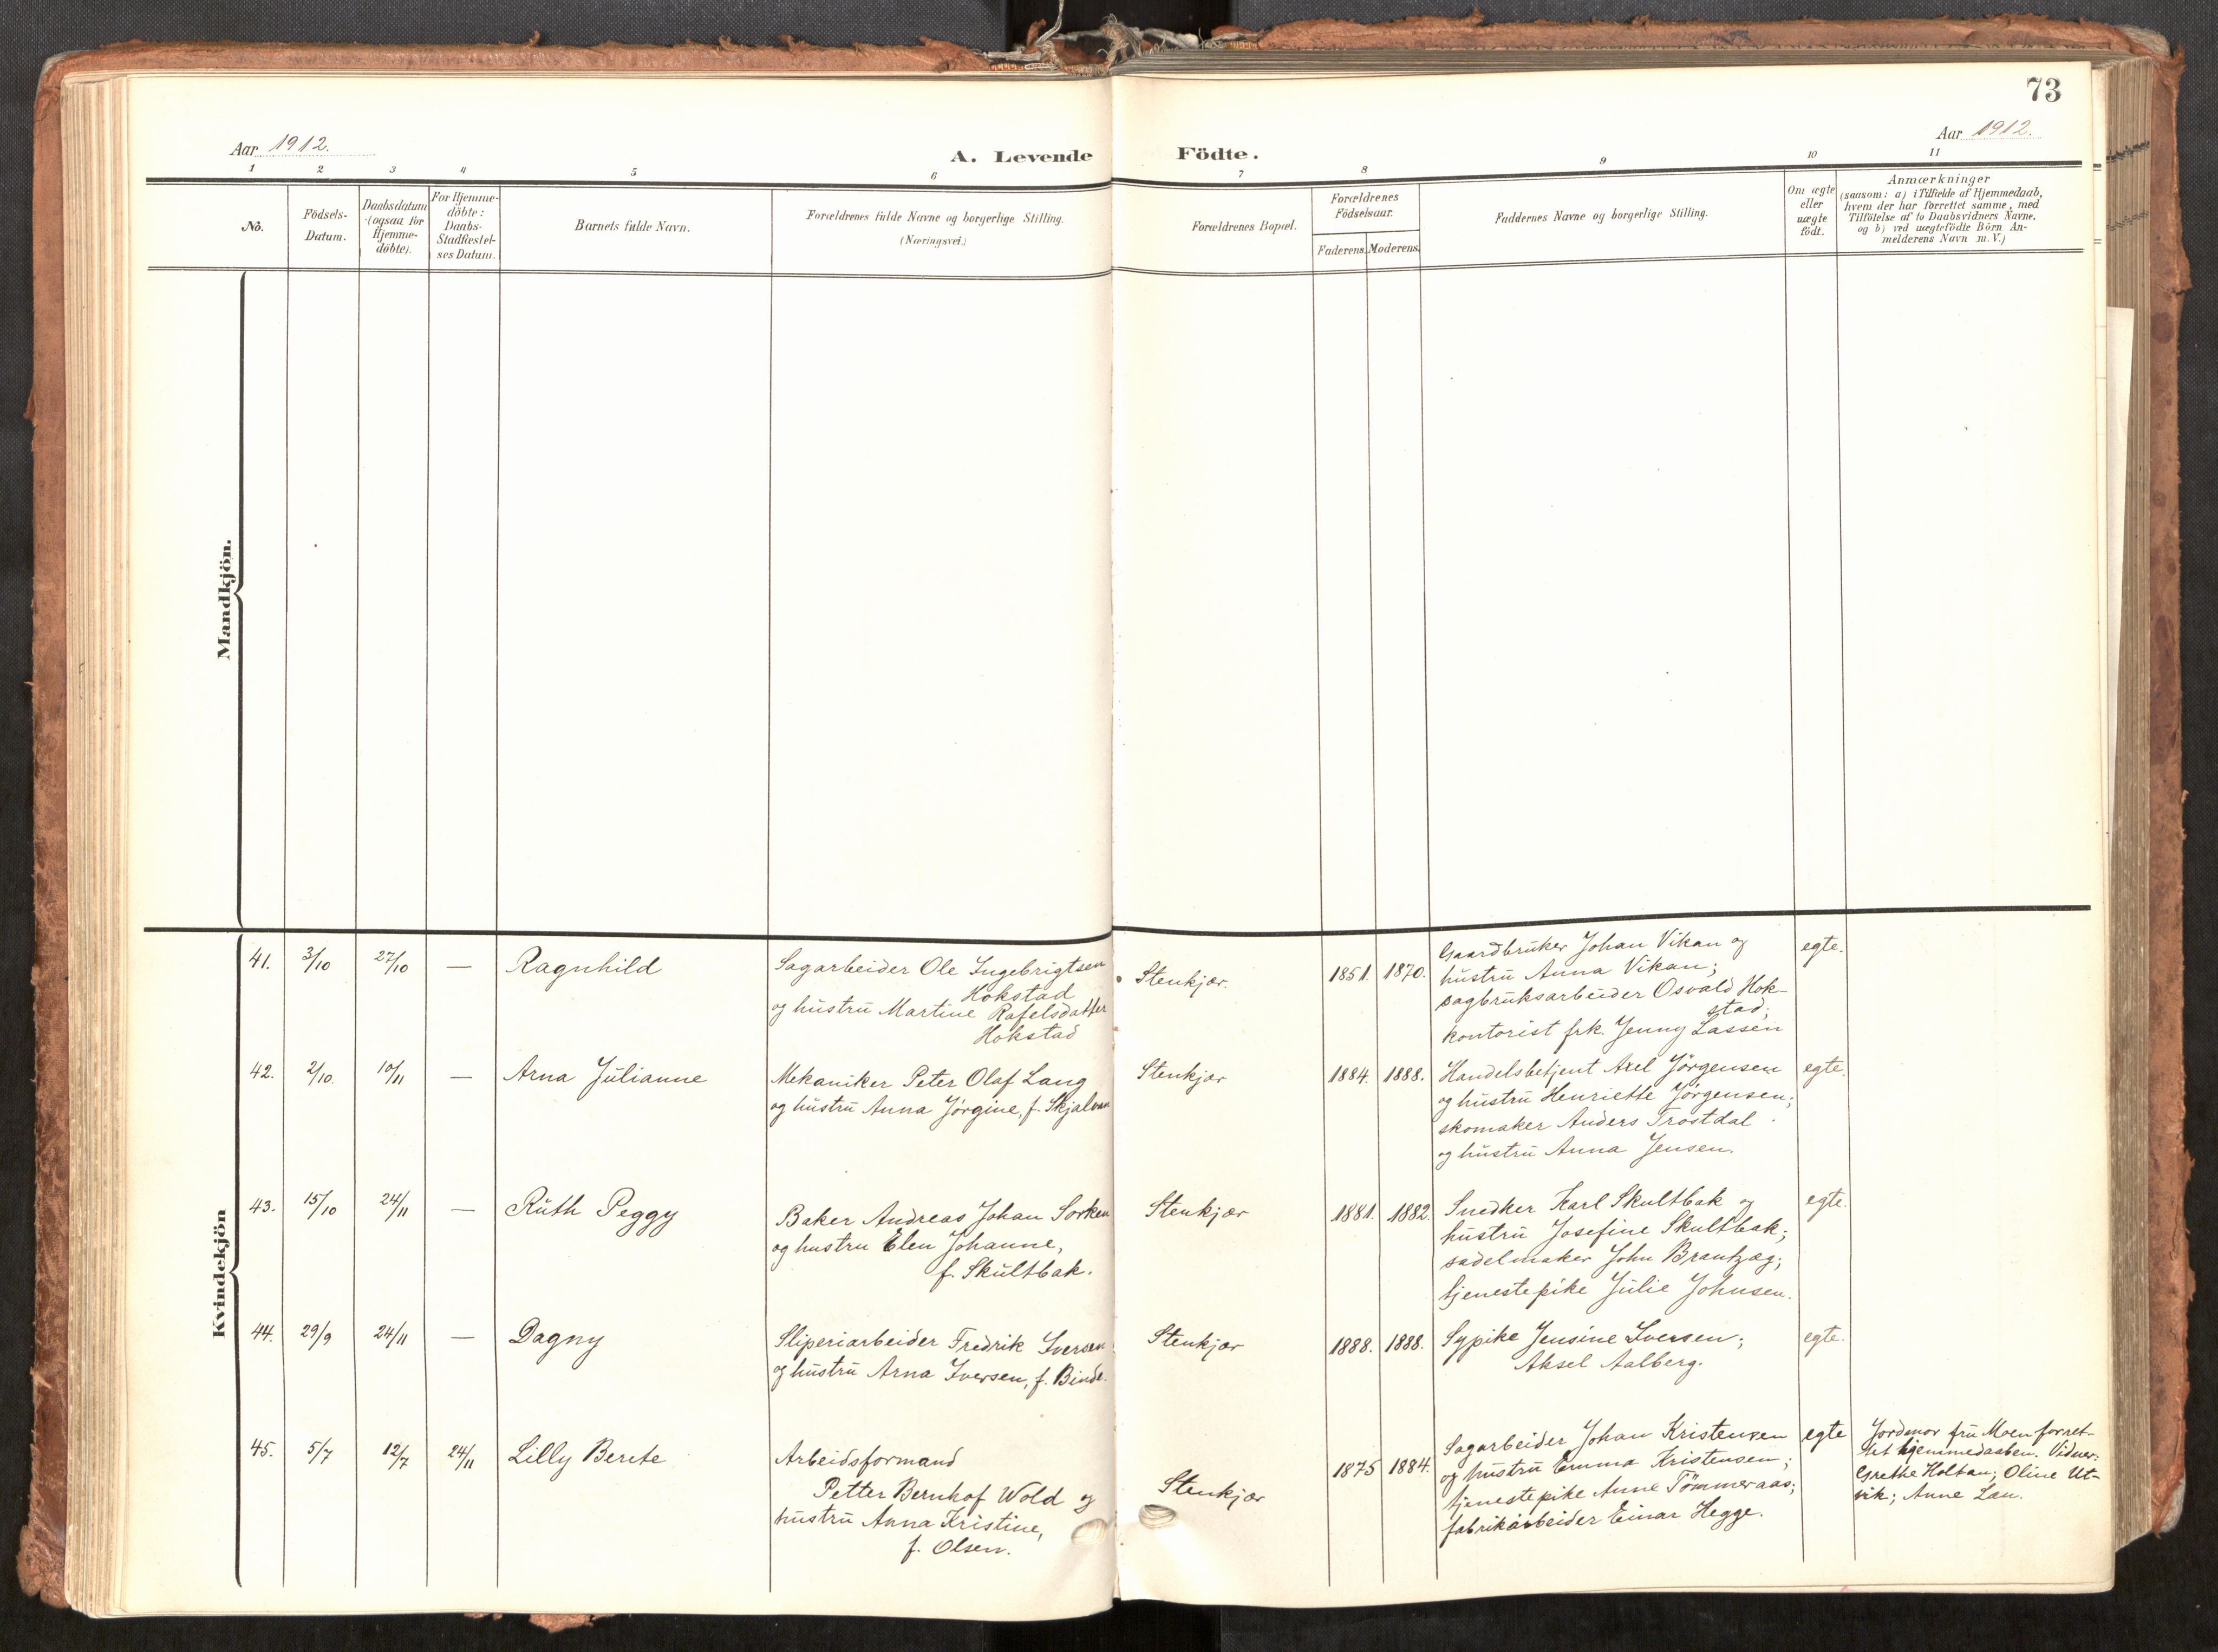 73
Aar 1912.
Aar 1912.
A. Levende Födte.
1 2 3 4 5 6 7 8 9 10 11
No.
Födsels-
Datum.
Daabsdatum
(ogsaa for
Hjemme-
döbte).
For Hjemme-
döbte:
Daabs-
Stadfæstel-
ses Datum.
Barnets fulde Navn.
Forældrenes fulde Navne og borgerlige Stilling.
(Næringsvei.)
Forældrenes Bopæl.
Forældrenes
Födselsaar.
Faderens. Moderens.
Faddernes Navne og borgerlige Stilling.
Om ægte
eller
uægte
födt.
Anmærkninger
(saasom: a) i Tilfælde af Hjemmedaab,
hvem der har forrettet samme, med
Tilföielse af to Daabsvidners Navne,
og b) ved uægtefödte Börn An-
melderens Navn m. V.)
Mandkjön.
Kvindekjön
41. 3/10 27/10 — Ragnhild
Sagarbeider Ole Ingebrigtsen
Hokstad
og hustru Martine Rafelsdatter
Hokstad
Stenkjær. 1851. 1870.
Gaardbruker Johan Vikan og
hustru Anna Vikan;
sagbruksarbeider Osvald Hok-
stad;
kontorist frk. Jenny Lassen
egte.
42. 2/10. 10/11 — Arna Julianne
Mekaniker Peter Olaf Lang
og hustru Anna Jörgine, f. Skjalvan
Stenkjær 1884. 1888.
Handelsbetjent Axel Jörgensen
og hustru Henriette Jörgensen;
skomaker Anders Trostdal
og hustru Anna Jensen.
egte.
43. 15/10 24/11 — Ruth Peggy
Baker Andreas Johan Sorken
og hustru Elen Johanne,
f. Skultbak.
Stenkjær 1881. 1882.
Snedker Karl Skultbak og
hustru Josefine Skultbak;
sadelmaker John Brantzæg;
tjenestepike Julie Johnsen.
egte.
44. 29/9 24/11 — Dagny
Sliperiarbeider Fredrik Iversen
og hustru Arna Iversen, f. Binde.
Stenkjær 1888. 1888.
Sypike Jensine Iversen;
Aksel Aalberg.
egte.
45. 5/7 12/7 24/11 Lilly Berete
Arbeidsformand
Petter Bernhof Wold og
hustru Anna Kristine,
f. Olsen.
Stenkjær 1875 1884.
Sagarbeider Johan Kristensen
og hustru Emma Kristensen;
tjenestepike Anne Tömmeraas;
fabrikarbeider Einar Hegge.
egte
Jordmor fru Moen forret-
tet hjemmedaaben. Vidner:
Grethe Holtan; Oline Ut-
vik; Anne Lau.